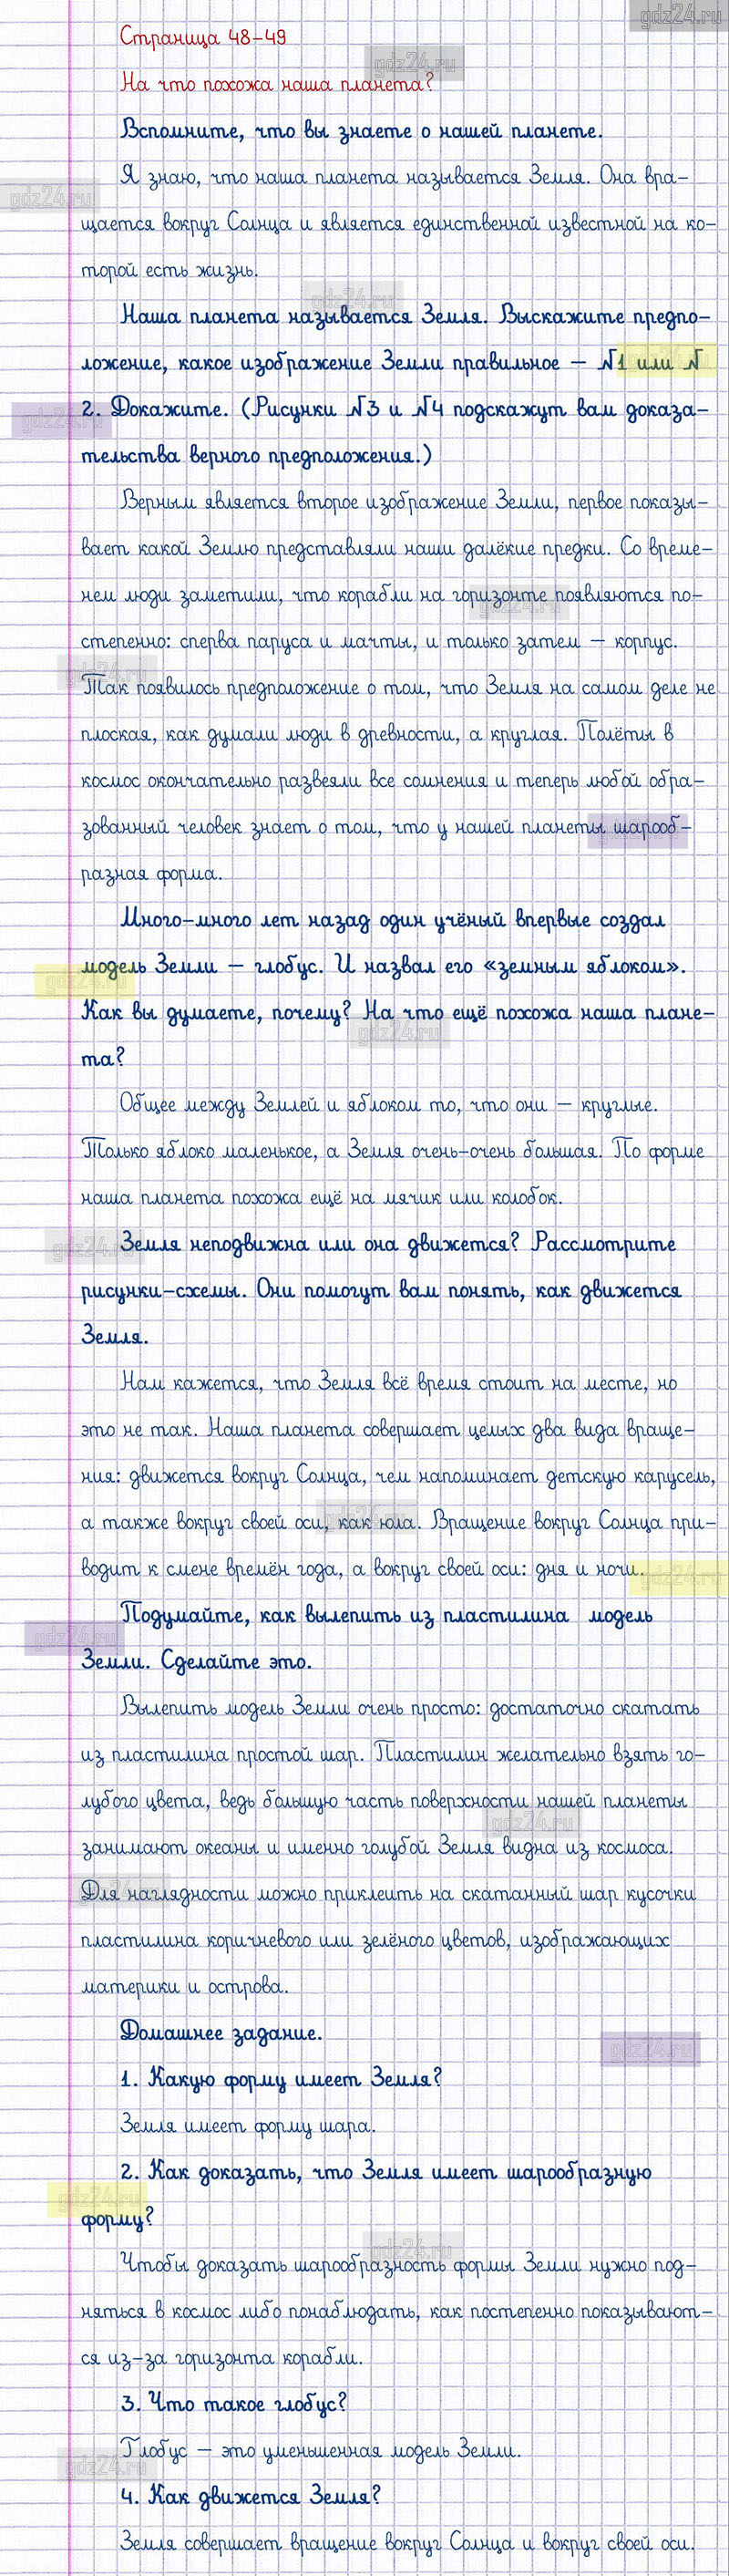 gdz24.ru
Страница 48-49
gdz24.ru
На что похожа наша планета?
Вспомните, что вы знаете о нашей планете.
Я знаю, что наша планета называется Земля. Она вра-
gdz24.ru
щается вокруг Солнца и является единственной известной на ко-
торой есть жизнь.
gdz24.ru
Наша планета называется Земля. Выскажите предпо-
ложение, какое изображение Земли правильное – №1 или №
gdz24.ru
2. Докажите. (Рисунки №3 и №4 подскажут вам доказа-
gdz24.ru
тельства верного предположения.)
Верным является второе изображение Земли, первое показы-
вает какой Землю представляли наши далёкие предки. Со време-
нем люди заметили, что корабли на горизонте появляются по-
gdz24.ru
степенно: сперва паруса и мачты, и только затем – корпус.
gdz24.ru
Так появилось предположение о том, что Земля на самом деле не
плоская, как думали люди в древности, а круглая. Полёты в
космос окончательно развеяли все сомнения и теперь любой обра-
зованный человек знает о том, что у нашей планеты шарооб-
gdz24.ru
разная форма.
Много-много лет назад один учёный впервые создал
модель Земли – глобус. И назвал его «земным яблоком».
gdz24.ru
Как вы думаете, почему? На что ещё похожа наша плане-
gdz24.ru
та?
Общее между Землей и яблоком то, что они – круглые.
Только яблоко маленькое, а Земля очень-очень большая. По форме
наша планета похожа ещё на мячик или колобок.
Земля неподвижна или она движется? Рассмотрите
gdz24.ru
рисунки-схемы. Они помогут вам понять, как движется
Земля.
Нам кажется, что Земля всё время стоит на месте, но
это не так. Наша планета совершает целых два вида враще-
ния: движется вокруг Солнца, чем напоминает детскую карусель,
а также вокруг своей оси, как юла. Вращение вокруг Солнца при-
gdz24.ru
водит к смене времён года, а вокруг своей оси: дня и ночи.
gdz24.ru
Подумайте, как вылепить из пластилина модель
gdz24.ru
Земли. Сделайте это.
Вылепить модель Земли очень просто: достаточно скатать
из пластилина простой шар. Пластилин желательно взять го-
лубого цвета, ведь большую часть поверхности нашей планеты
gdz24.ru
занимают океаны и именно голубой Земля видна из космоса.
Для наглядности можно приклеить на скатанный шар кусочки
gdz24.ru
пластилина коричневого или зелёного цветов, изображающих
материки и острова.
Домашнее задание.
gdz24.ru
1. Какую форму имеет Земля?
Земля имеет форму шара.
2. Как доказать, что Земля имеет шарообразную
gdz24.ru
форму?
gdz24.ru
Чтобы доказать шарообразность формы Земли нужно под-
няться в космос либо понаблюдать, как постепенно показывают-
ся из-за горизонта корабли.
3. Что такое глобус?
Глобус – это уменьшенная модель Земли.
gdz24.ru
4. Как движется Земля?
Земля совершает вращение вокруг Солнца и вокруг своей оси.